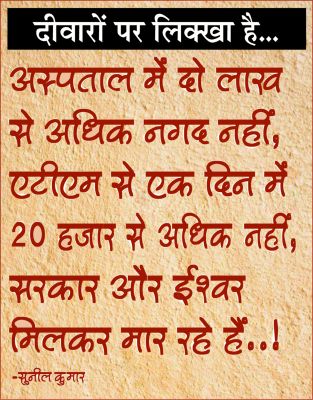 दीवारों पर लिक्खा है...
अस्पताल में दो लाख
से अधिक नगद नहीं,
एटीएम से एक दिन में
20 हजार से अधिक नहीं,
सरकार और ईश्वर
मिलकर मार रहे हैं..!
-सुनील कुमार